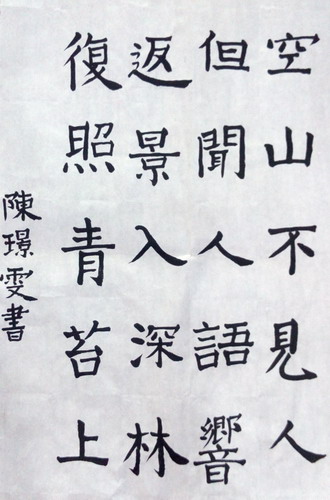 空山不見人
但聞人語響
返景入深林
復照青苔上
陳璟雯書